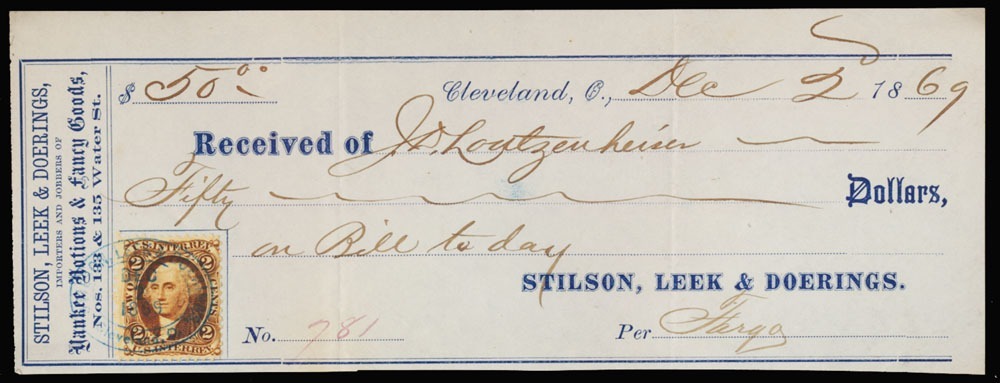 STILSON, LEEK & DOERINGS,
IMPORTERS AND JOBBERS OF
Yankee Notions & Fancy Goods,
Nos. 133 & 135 Water St.
$ 50.00 Cleveland, O., Dec 2 1869
Received of J.D. Loutzenheiser
Fifty Dollars,
on Bill to day
STILSON, LEEK & DOERINGS.
No. 781 Per Fargo
U.S. INTER. REV.
2 2
TWO CENTS
2 2
U.S. INTER. REV.